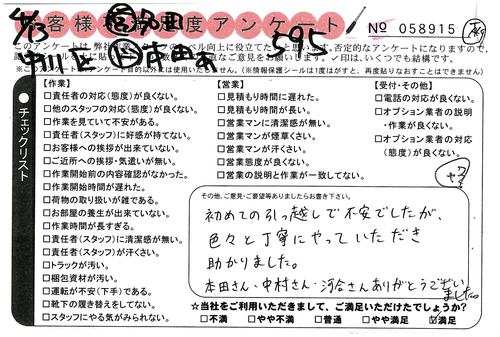 お客様満足度アンケート
№ 058915
4/13
中川区
595
このアンケートは、弊社
ベル向上に役立てた
否定的なアンケートになりますので、
✓印は、いくつでも結構です。
※このアンケート
目的以外には使用いたしません。(※情報保護シールは1度はがすと、再度貼りなおすことはできません)
●チェックリスト
【作業】
□責任者の対応(態度)が良くない。
□他のスタッフの対応(態度)が良くない。
□作業を見ていて不安がある。
□責任者(スタッフ)に好感が持てない。
□お客様への挨拶が出来ていない。
□ご近所への挨拶・気遣いが無い。
□作業開始前の内容確認がなかった。
□作業開始時間が遅れた。
□荷物の取り扱いが雑である。
□お部屋の養生が出来ていない。
□作業時間が長すぎる。
□責任者(スタッフ)に清潔感が無い。
□責任者(スタッフ)が汗くさい。
□トラックが汚い。
□梱包資材が汚い。
□運転が不安(下手)である。
□靴下の履き替えをしてない。
□スタッフにやる気がみられない。
【営業】
□見積もり時間に遅れた。
□見積もり時間が長い。
□営業マンに清潔感が無い。
□営業マンが煙草くさい。
□営業マンが汗くさい。
□営業態度が良くない。
□営業の説明と作業が一致してない。
【受付・その他】
□電話の対応が良くない。
□オプション業者の説明
・作業が良くない。
□オプション業者の対応
(態度)が良くない。
その他、ご意見・ご要望等ありましたらお書き下さい。
初めての引っ越しで不安でしたが、
色々と丁寧にやっていただき
助かりました。
本田さん・中村さん・河合さんありがとうござい
ました。
☆当社をご利用いただきまして、ご満足いただけたでしょうか?
□不満 □やや不満 □普通 □やや満足 ☑満足